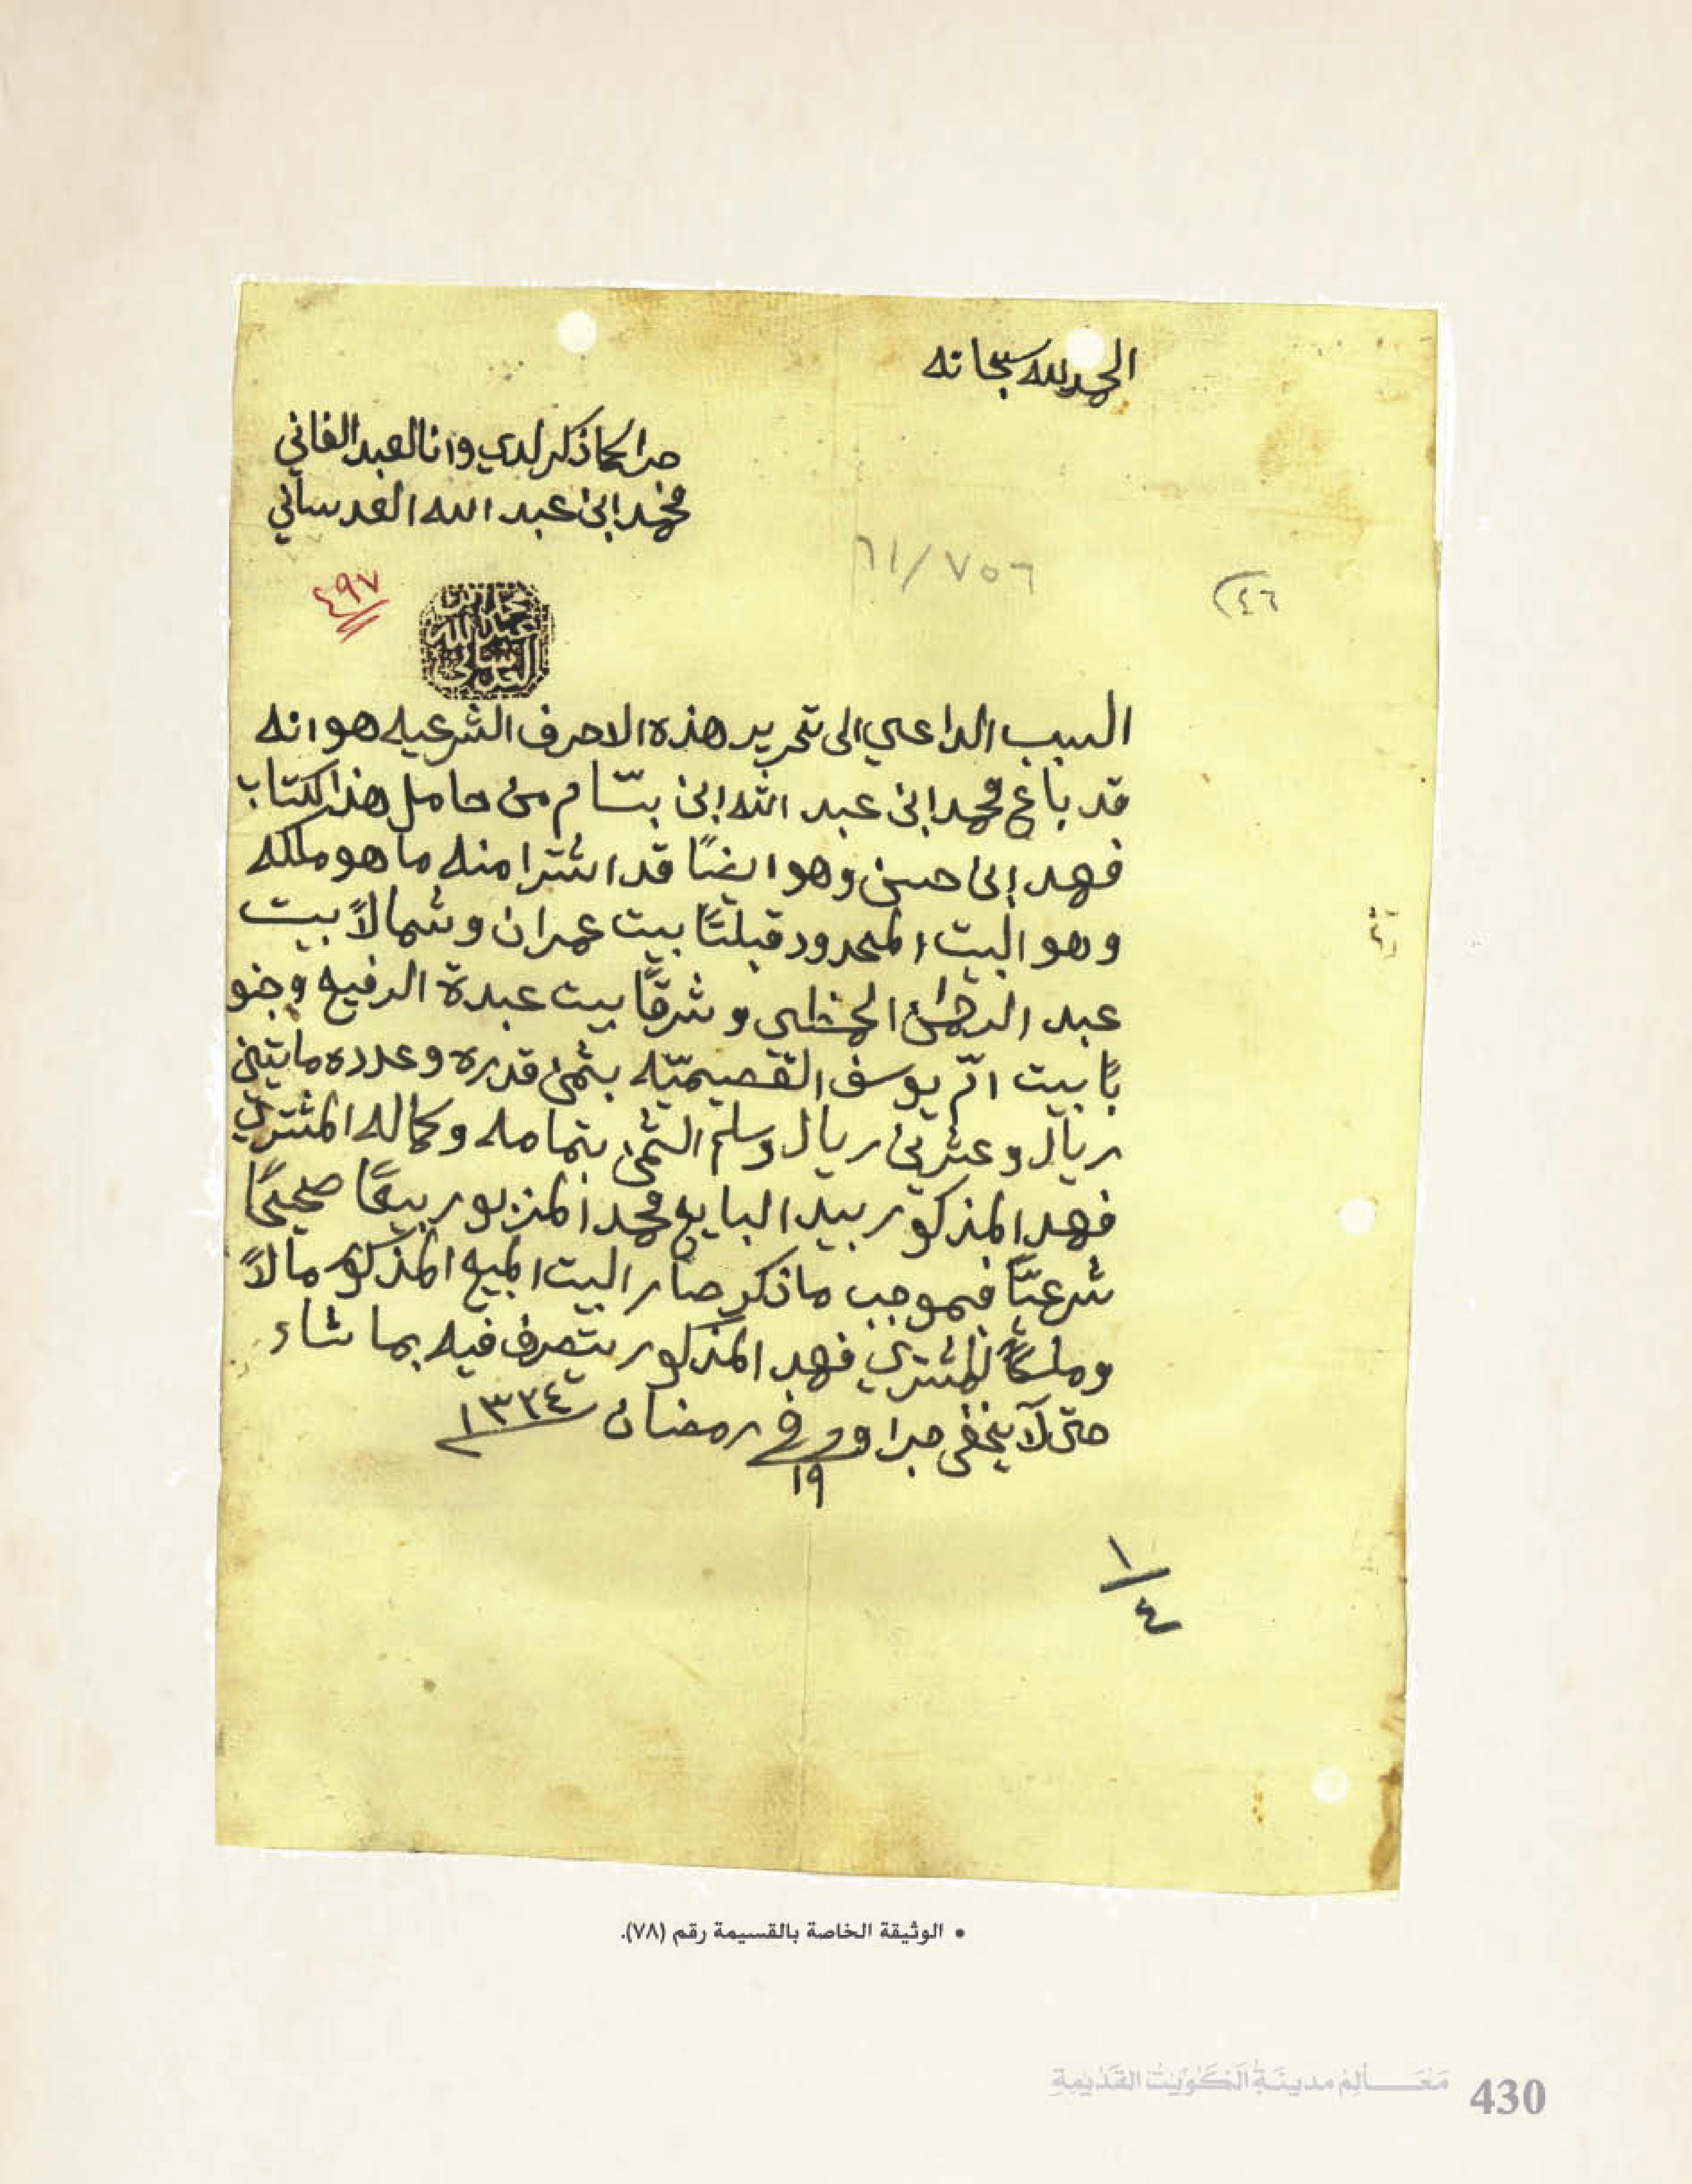 الحمد لله سبحانه
جرا كما ذكر لدي وانا العبد الفاني
محمد ابن عبد الله العدساني
٦١/٧٥٦
٤٦)
٤٩٧
محمد ابن
عبد الله
العدساني
السبب الداعي الى تحرير هذه الاحرف الشرعيه هو انه
قد باع محمد ابن عبد الله ابن بسّام من حامل هذا الكتاب
فهد ابن حسن وهو ايضًا قد اشترا منه ما هو ملكه
وهو البيت المحدود قبلتًا بيت عمران وشمالاً بيت
عبد الرحمن وشرقًا بيت عبدة الرفيع وجنو
بًا بيت امّ يوسف القصيميّه بثمن قدره وعدده مايتين
ريال وعشرين ريال وسلم الثمن بتمامه وكماله المشتري
فهد المذكور بيد البايع محمد المزبور بيعًا صحيحًا
شرعيًّا فبموجب ما ذكر صار البيت المبيع المذكور مالاً
وملكًا للمشتري فهد المذكور يتصرف فيه بما شاء
حتى لا يخفى جرا وحرر في ١٩ رمضان ١٣٢٤
١/٤
• الوثيقة الخاصة بالقسيمة رقم (٧٨).
مَعَـــالِمُ مدينَـةِ الكُوَيتْ القَدْيمِةِ 430